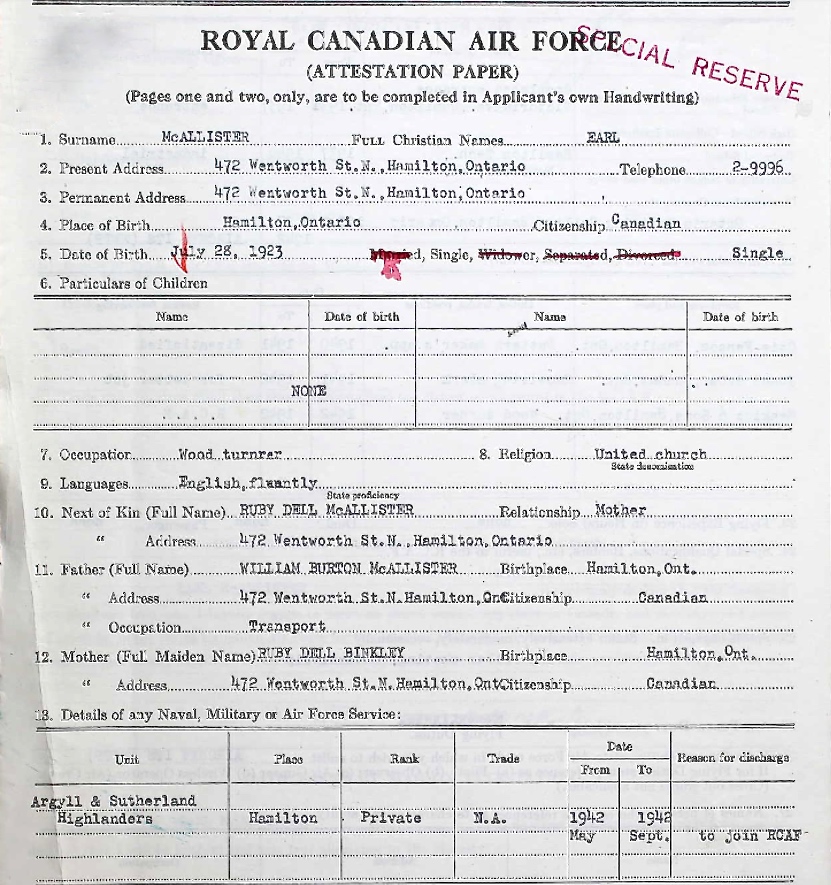 ROYAL CANADIAN AIR FORCE
SPECIAL RESERVE
(ATTESTATION PAPER)
(Pages one and two, only, are to be completed in Applicant's own Handwriting)
1. Surname McALLISTER Full Christian Names EARL
2. Present Address 472 Wentworth St.N.,Hamilton,Ontario Telephone 2-9996
3. Permanent Address 472 Wentworth St.N.,Hamilton,Ontario
4. Place of Birth Hamilton,Ontario Citizenship Canadian
5. Date of Birth July 28, 1923 Married, Single, Widower, Separated, Divorced Single
6. Particulars of Children
Name Date of birth Name Date of birth
NONE
7. Occupation Wood turnrer 8. Religion United church
State denomination
9. Languages English,fluantly
State proficiency
10. Next of Kin (Full Name) RUBY DELL McALLISTER Relationship Mother
" Address 472 Wentworth St.N.,Hamilton,Ontario
11. Father (Full Name) WILLIAM BURTON McALLISTER Birthplace Hamilton,Ont.
" Address 472 Wentworth St.N.Hamilton,Ont Citizenship Canadian
" Occupation Transport
12. Mother (Full Maiden Name) RUBY DELL BINKLEY Birthplace Hamilton,Ont.
" Address 472 Wentworth St.N.Hamilton,Ont Citizenship Canadian
13. Details of any Naval, Military or Air Force Service:
Unit Place Rank Trade Date Reason for discharge
From To
Argyll & Sutherland
Highlanders Hamilton Private N.A. 1942 1942
May Sept. to join RCAF